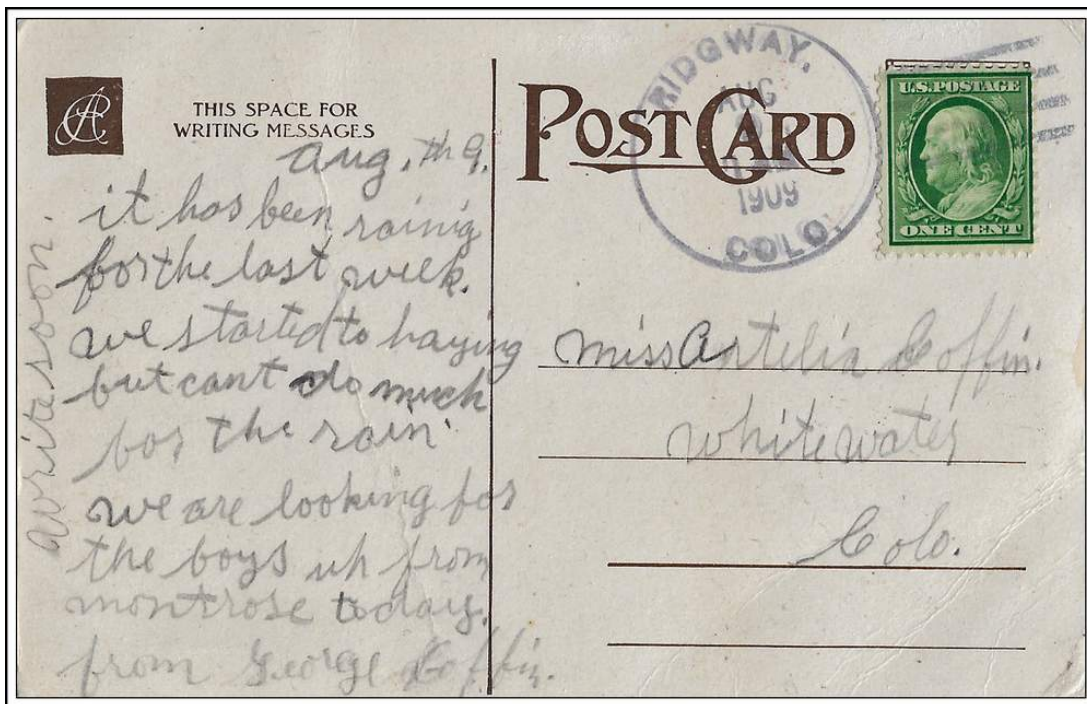 THIS SPACE FOR
WRITING MESSAGES
Aug. th 9.
it has been rainig
for the last week.
we started to haying
but cant do much
for the rain.
we are looking for
the boys up from
montrose today.
from George Coffin.
write soon.
POST CARD
RIDGWAY,
AUG
9
1909
COLO.
U.S. POSTAGE
ONE CENT
Miss Artelia Coffin.
Whitewater
Colo.